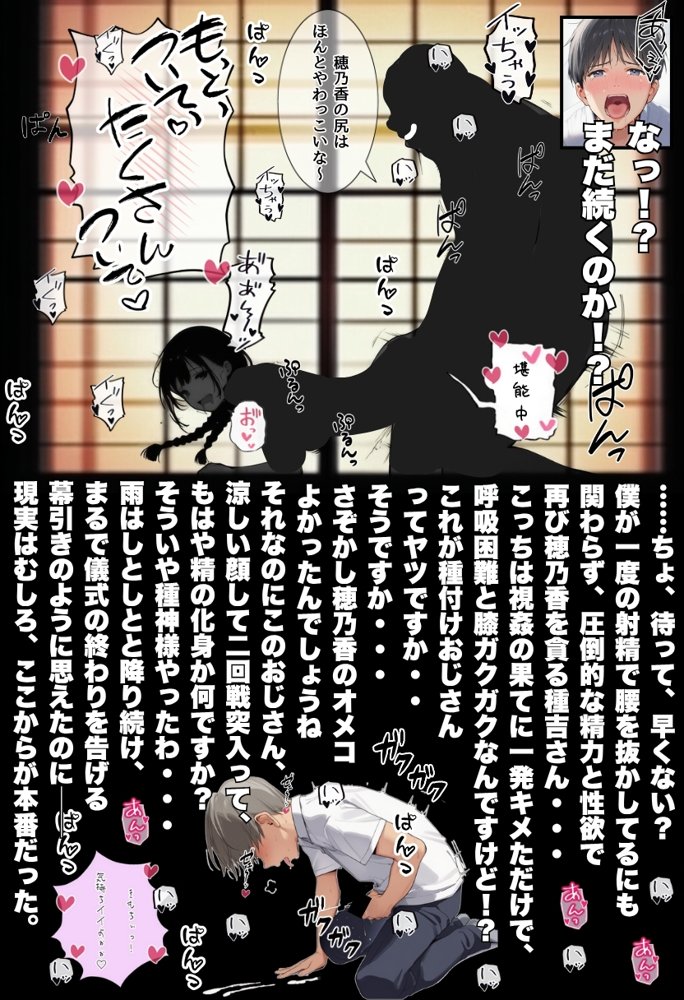 あへぇ
なっ!?
まだ続くのか!?
イッちゃう
穂乃香の尻は
ほんとやわっこいな～
もっと、
ついてっ♡
たくさん
ついて♡
ぱんっ
ぱん
イッちゃう
ぱんっ
ぱんっ
ぱんっ
ぱんっ
ぱんっ
あ゛あ゛ん～っ
ぷるんっ
ぷるんっ
お゛っ
堪能中
……ちょ、待って、早くない?
僕が一度の射精で腰を抜かしてるにも
関わらず、圧倒的な精力と性欲で
再び穂乃香を貪る種吉さん・・・
こっちは視姦の果てに一発キメただけで、
呼吸困難と膝ガクガクなんですけど!?
これが種付けおじさん
ってヤツですか・・
そうですか・・・
さぞかし穂乃香のオメコ
よかったんでしょうね
それなのにこのおじさん、
涼しい顔して二回戦突入って、
もはや精の化身か何ですか?
そういや種神様やったわ・・・
雨はしとしとと降り続け、
まるで儀式の終わりを告げる
幕引きのように思えたのに――
現実はむしろ、ここからが本番だった。
ガクガク
ガクガク
ぱんっ
ぱんっ
ぱんっ
ぱんっ
あんっ
あんっ
あんっ